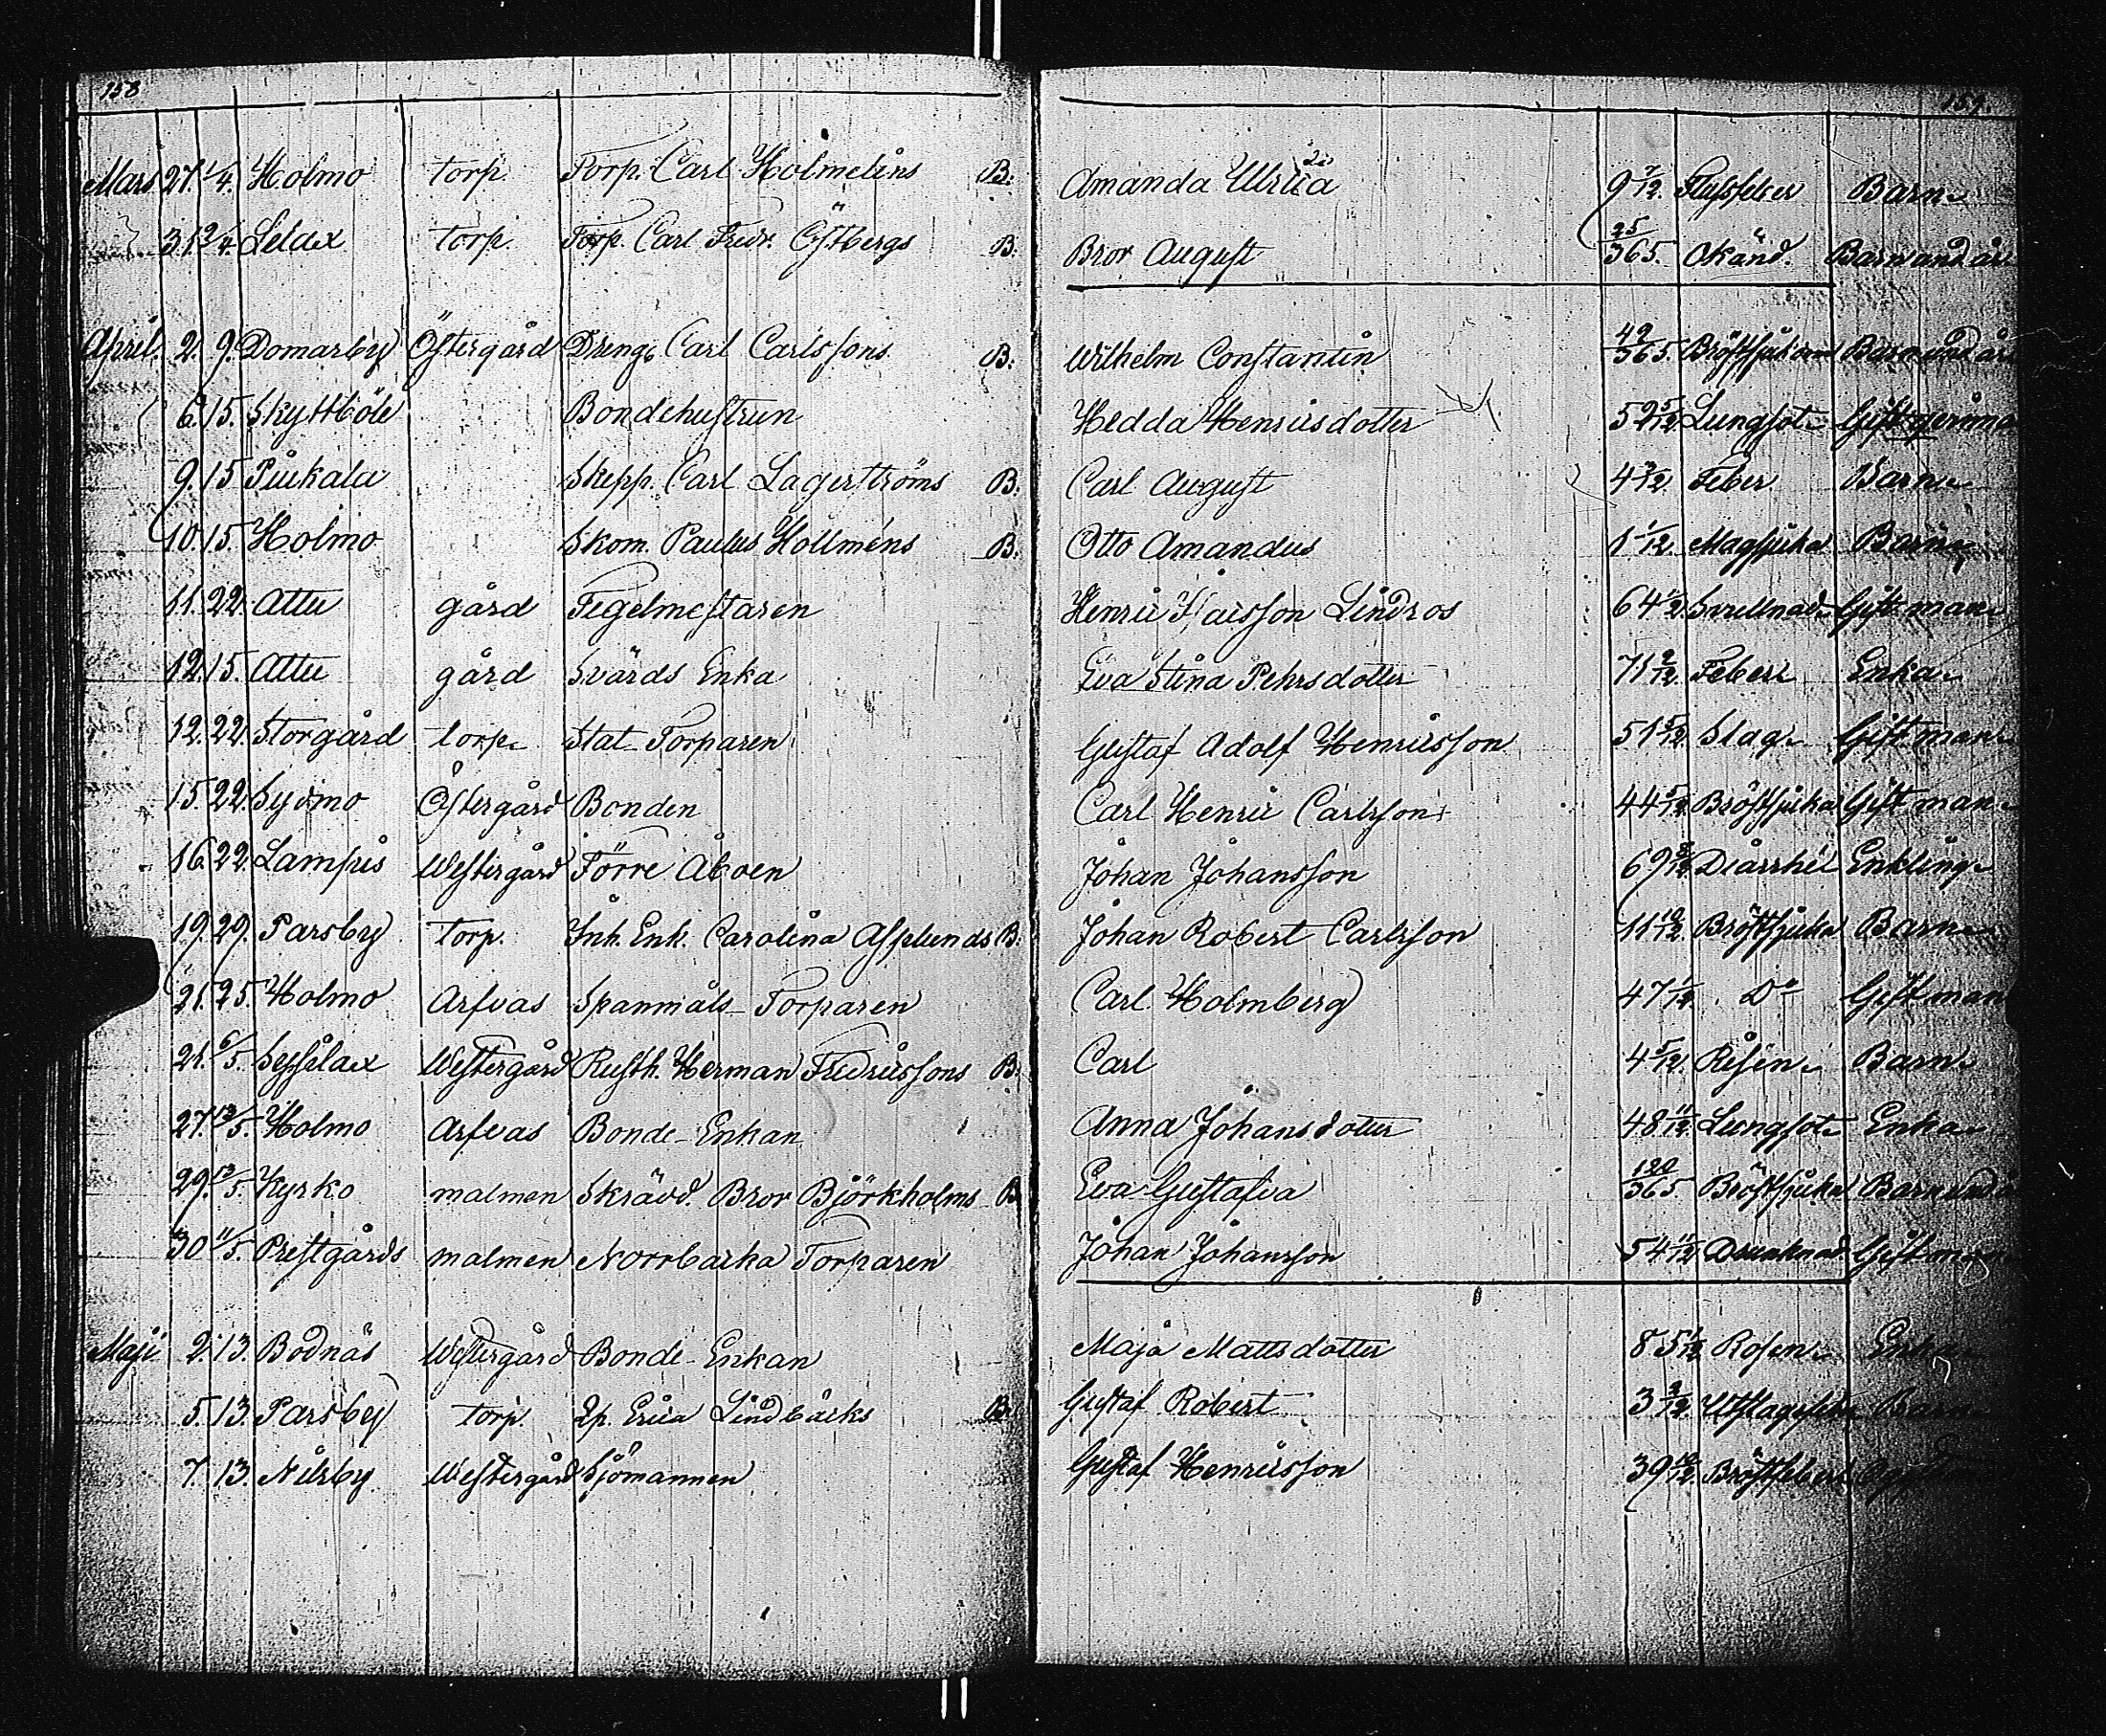 158 159.
Mars 27. 1/4. Holmo torp. Torp. Carl Holmelins B. Amanda Ulrica 9 7/12. Barn
31. 9/4. Lelax torp. Torp. Carl Fredr. Östbergs B. Bror August 25/365. Okänd. Barn und. år
April. 2. 9. Domarby Östergård Dreng. Carl Carlssons B. Wilhelm Constantin 49/365. Barn und. år
6. 15. Skyttböle Bondehustrun Hedda Henricsdotter 52 5/12 Lungsot Gift qvinna
9. 15 Piukala Skepp. Carl Lagerströms B. Carl August Feber Barn
10. 15. Holmo Skom. Paulus Hollméns B. Otto Amandus 1 1/12. Magsjuka Barn
11. 22. Attu gård Tegelmestaren Henric Lindros 64 Svullnad Gift man
12. 15. Attu gård Svärds Enka Eva Stina Pehrsdotter 71 2/12. Feber Enka
12. 22. Storgård torp Stat Torparen Gustaf Adolf Henricsson 51 5/12. Slag Gift man
15. 22. Sydmo Östergård Bonden Carl Henric Carlsson 44 5/12 Bröstsjuka Gift man
16. 22. Lampis Westergård Förre Åboen Johan Johansson 69 Diarrhé Enkling
19. 29. Parsby torp. Inh. Enk. Carolina Asplunds B. Johan Robert Carlsson 11 10/12. Bröstsjuka Barn
21. 25. Holmo Arfvas Spanmåls Torparen Carl Holmberg 47 1/12. Do Gift man
21. 6/5. Sysilax Westergård Rusth. Herman Fredricssons B. Carl 4 5/12. Barn
27. 13/5. Holmo Arfvas Bonde-Enkan Anna Johansdotter 48 11/12. Lungsot Enka
29. 13/5. Kyrko malmen Skrädd. Bror Björkholms B Eva Gustafva 120/365 Bröstsjuka Barn und. å
30 11/5. Prestgårds malmen Norrbacka Torparen Johan Johansson 54 11/12. Drunknad Gift man
Maji 2. 13. Bodnäs Westergård Bonde-Enkan Maja Mattsdotter 85 Rosen Enka
5. 13. Parsby torp. Qp. Erica Lindbäcks B. Gustaf Robert 3 Barn
7. 13. Nilsby Westergård Sjömannen Gustaf Henricsson 39 10/12. Bröstfeber